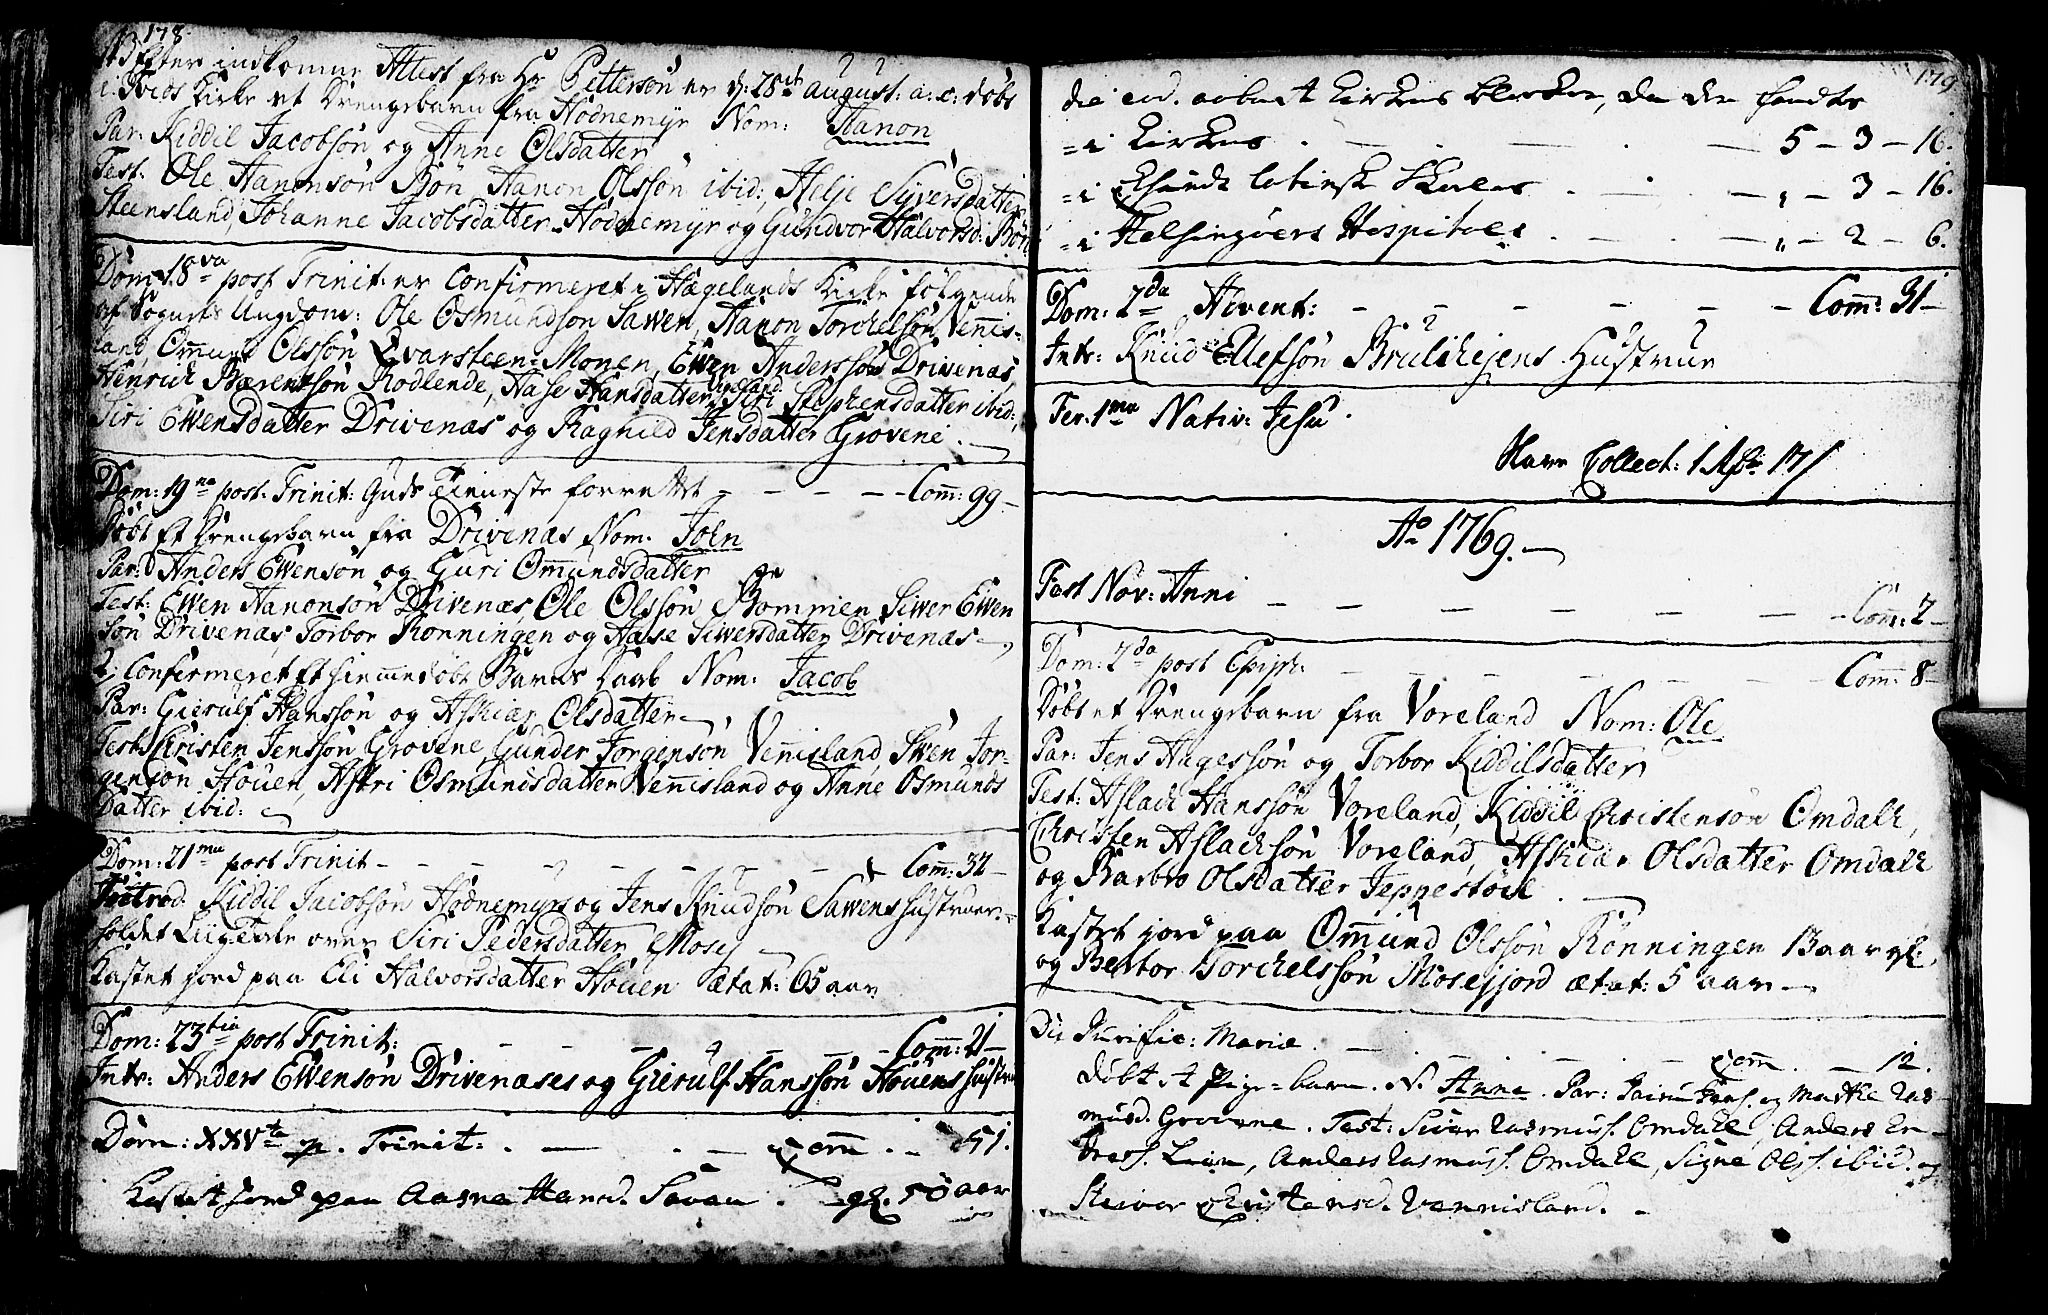 178.
Efter indkomne Attest fra Hr Petterson er d: 28de august: a: c: døbt
i Øvids Kirke et Drengebarn fra Hodnemyr Nom: Hanon
Par: Kiddil Jacobsøn og Anne Olsdatter
Test: Ole Hanonsøn Bøn, Hanon Olssøn ibid:, Helje Syversdatter
Steensland, Johanne Jacobsdatter Hodnemyr og Gundvor Halvorsd: Bøn
Dom: 18va post Trinit: er Confirmeret i Hægelands Kirke følgende
af Sognets Ungdom: Ole Osmundsøn Sawen, Hanon Torchelsøn Vennis-
land, Ommund Olssøn Qvarsteen-Monen, Ewen Anderssøn Drivenæs,
Henrich Bærentsøn Rodlende, Aase Hansdatter Vinland Siri Stephensdatter ibid:,
Siri Ewensdatter Drivenæs og Ragnild Jensdatter Grovene.
Dom: 19na post: Trinit: Guds Tieneste forrettet - - - - - Com: 99 -
Døbt Et Drengebarn fra Drivenæs Nom. Joen
Par: Anders Ewensøn og Guri Ommundsdatter
Test: Ewen Hanonsøn Drivenæs, Ole Olssøn Bommien, Siwer Ewen
søn Drivenæs, Torbor Ronningen og Aase Siwersdatter Drivenæs
2, Confirmeret Et hiemmedøbt Barns Daab Nom: Jacob
Par: Gierulf Hanssøn og Askiær Olsdatter
Test: Christen Jenssøn Grovene, Gunder Jorgensøn Vennisland, Swen Jor-
gensøn Houen, Astri Osmundsdatter Vennisland og Anne Osmunds
datter ibid:
Dom: 21ma post Trinit - - - - - Com: 32 -
Introd. Kiddil Jacobsøn Hodnemyrs og Jens Knudsøn Sawens Hustruer
holdet Liigtale over Siri Pedersdatter Mosej
Kastet jord paa Eli Halvorsdatter Houen ætat: 65 aar
Dom: 23tia post Trinit: - - - - - Com: 21 -
Intr: Anders Ewensøn Drivenæses og Gierulf Hanssøn Houens Hustru
Dom: XXVta p. Trinit: - - Com . . 51.
Kastet jord paa Aasne Hansd. Sawen . gl. 50 aar
179
die eod. aabnet Kirkens blocker, da der fandtes
= i Kirkens . - . - . - 5 - 3 - 16.
= i latinske Skoles . . - " - 3 - 16.
= i Helsingøers Hospitals . - . - " - 2 - 6.
Dom: 2da Advent: - - - - - - Com: 31 -
Intr: Knud Ellefsøn Brulihejens Hustrue
Fer: 1ma Nativ: Jesu.
Collect:
Ao 1769.
Fest Nov: Anni - - - - - - - Com: 2 -
Dom: 2da post Epiph: - - - - - - Com: 8 -
Døbt et Drengebarn fra Voreland Nom: Ole
Par: Jens Aagessøn og Torbor Kiddilsdatter
Test: Aslach Hanssøn Voreland, Kiddil Christensøn Omdals,
Christen Aslachsøn Voreland, Askiær Olsdatter Omdals
og Barbro Olsdatter Jeppestøel.
Kastet jord paa Ommund Olssøn Rönningen 13 aar gl:
og Bertor Torchelssøn Mosefjord ætat: 5 aar
Die Purific: Mariæ . - . - . - Com. - 12.
døbt et Pige-barn. N. Anne. Par: Hans. og Marthe Ras-
musd. Grovene. Test: Siver Rasmuss. Omdals, Anders En-
dress. Lien, Anders Rasmuss. Omdals, Signe Olss. ibid. og
Christensd. Vennisland.